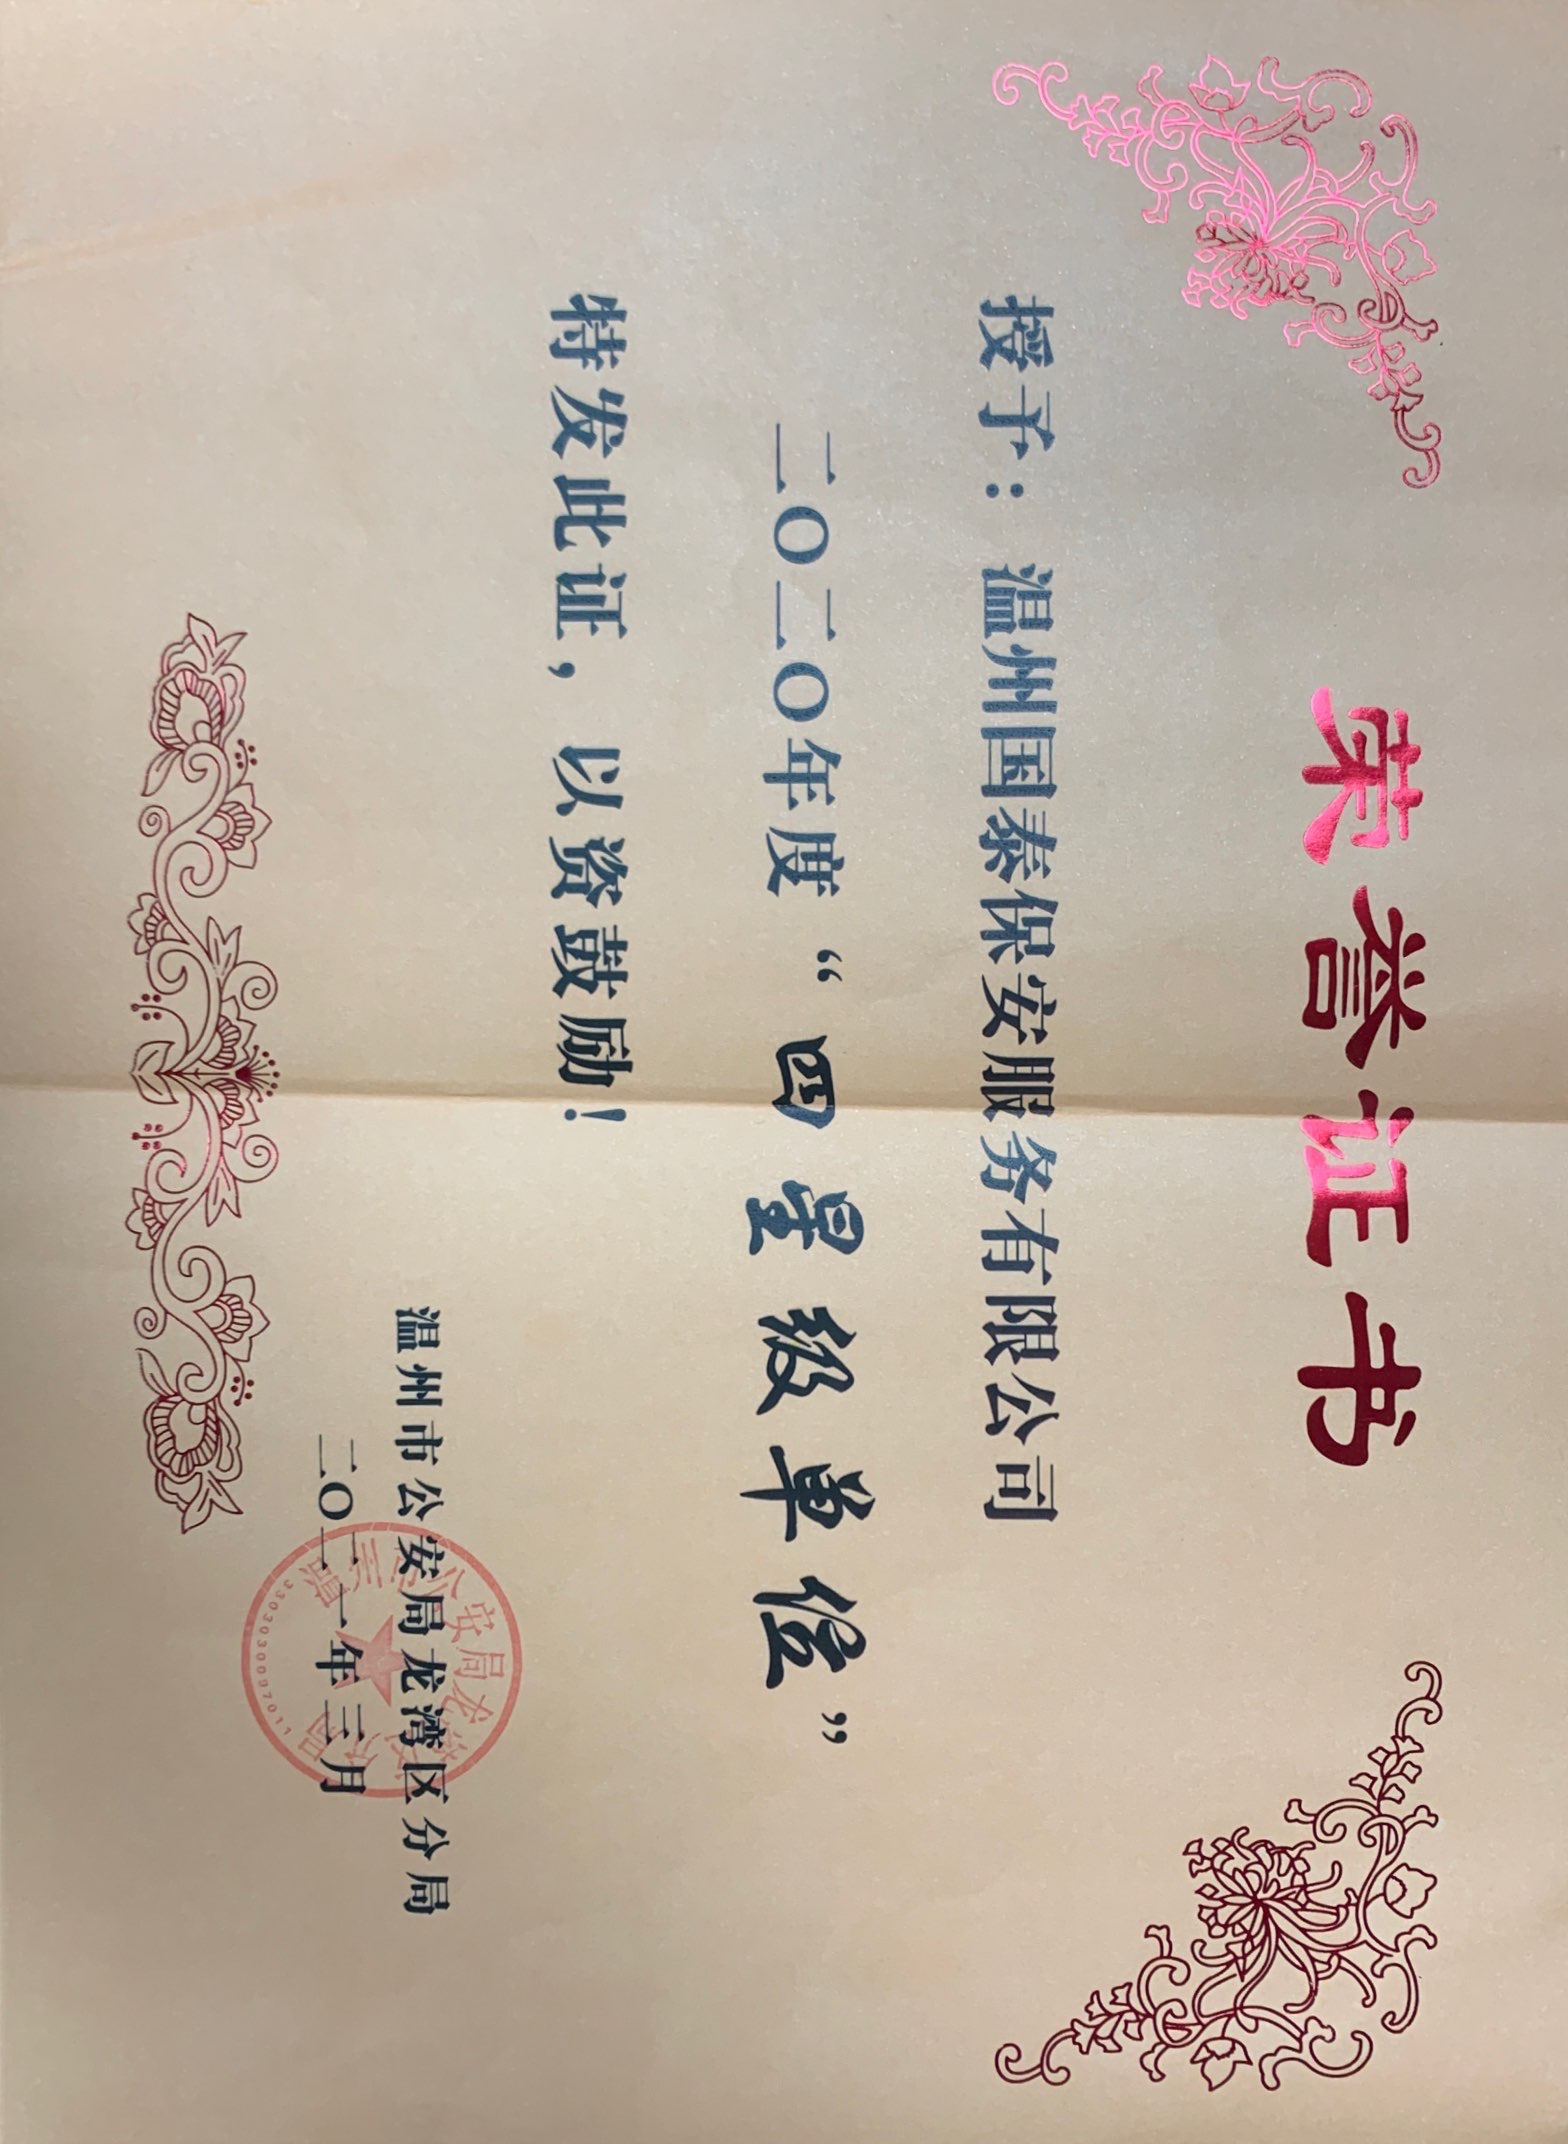 荣誉证书
授予：温州国泰保安服务有限公司
二〇二〇年度“四星级单位”
特发此证，以资鼓励！
温州市公安局龙湾区分局
二〇二一年三月